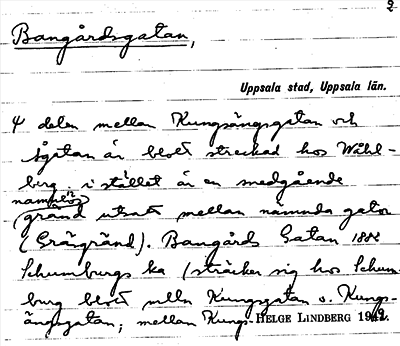 2
Bangårdsgatan,
Uppsala stad, Uppsala län.
delen mellan Kungsängsgatan och
Ågatan är blott streckad hos Wahl-
berg, i stället är en medgående
namnlös
gränd utsatt mellan nämnda gator
(Gränd). Bangårds Gatan 1882
Schumburgs ka (sträcker sig hos Schum-
burg blott mlln Kungsgatan o. Kungs-
ängsgatan; mellan Kungs-
HELGE LINDBERG